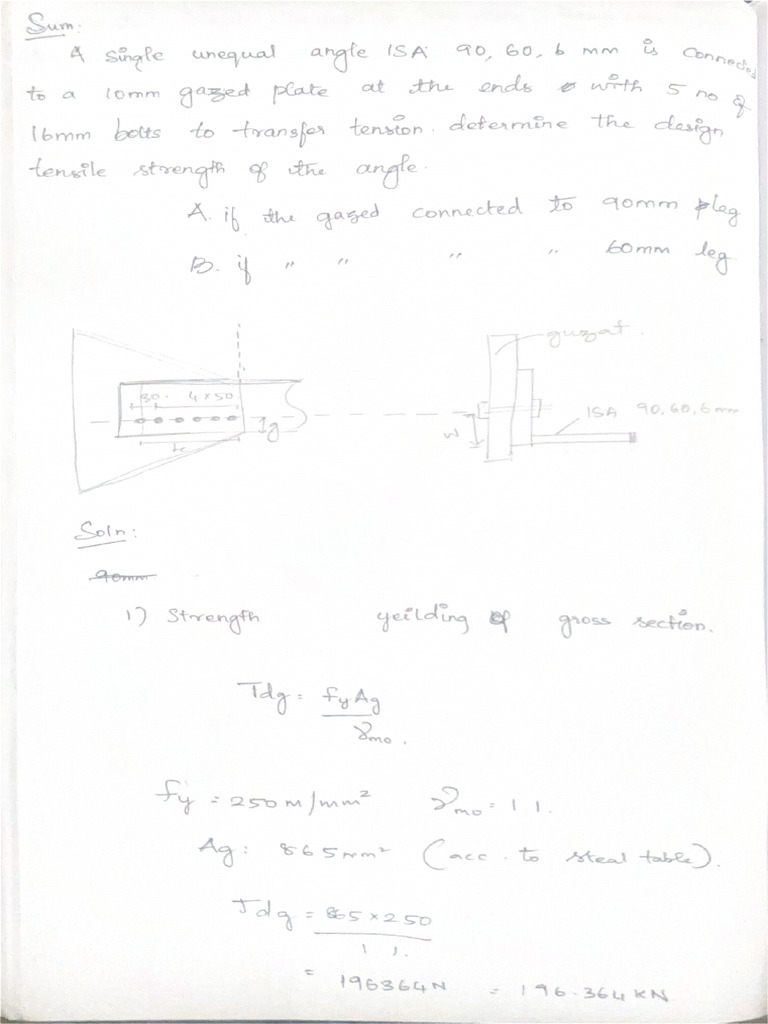 Sum:
A single unequal angle ISA 90, 60, 6 mm is connected
to a 10mm gazed plate at the ends with 5 no of
16mm bolts to transfer tension. determine the design
tensile strength of the angle.
A. if the gazed connected to 90mm leg
B. if " " " " 60mm leg
guzat.
30. 4 x 50
g
Lc
W
ISA 90, 60, 6 mm
Soln:
90mm
1) Strength yeilding of gross section.
Tdg = fy Ag
γmo.
fy = 250 m/mm² γmo = 1 1.
Ag: 865 mm² (acc. to steal table).
Tdg = 865 x 250
1 1.
= 196364N = 196.364 KN